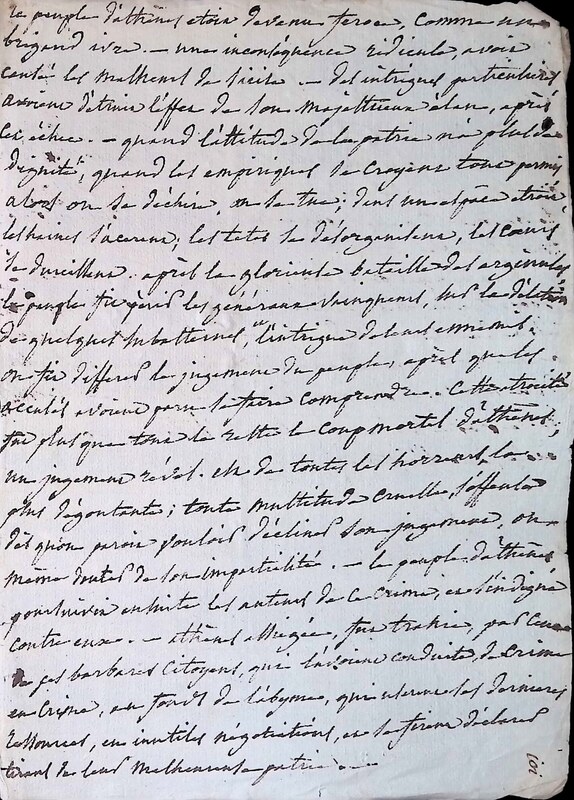 le peuple d'athènes etoit devenu feroce, comme un
brigand ivre. — une inconséquence ridicule, avoit
causé les malheurs de sicile. — des intrigues particulieres
avoient détruit l'effet de son majestueux elan, après
cet échec. — quand l'attitude de la patrie n'a plus de
dignité, quand les empiriques se croyent tout permis
alors on se déchire, on se tue; dans un espace etroit
les haines s'acerent; les tetes se désorganisent, les cœurs
se durcissent. après la glorieuse bataille des arginuses
le peuple fit périr les généraux vainqueurs, sur la délation
de quelques subalternes, et l'intrigue de leurs ennemis.
on fit differer le jugement du peuple, après que les
accusés avoient paru se faire comprendre. Cette atrocité
fut plus que tout le reste le coup mortel d'athènes;
un jugement révol. est de toutes les horreurs la
plus dégoutante; toute multitude cruelle, s'offense
dès qu'on paroit vouloir décliner son jugement, ou
même douter de son impartialité. — le peuple d'athènes
poursuivit ensuite les auteurs de ce crime, et s'indigna
contre eux. — athènes assiégée, fut trahie, par ceux
de ses barbares citoyens, qui l'avoient conduite, de crime
en crime, au fond de l'abyme, qui userent ses dernieres
ressources, en inutiles négotiations, et se firent déclarer
tirans de leur malheureuse patrie. —
101